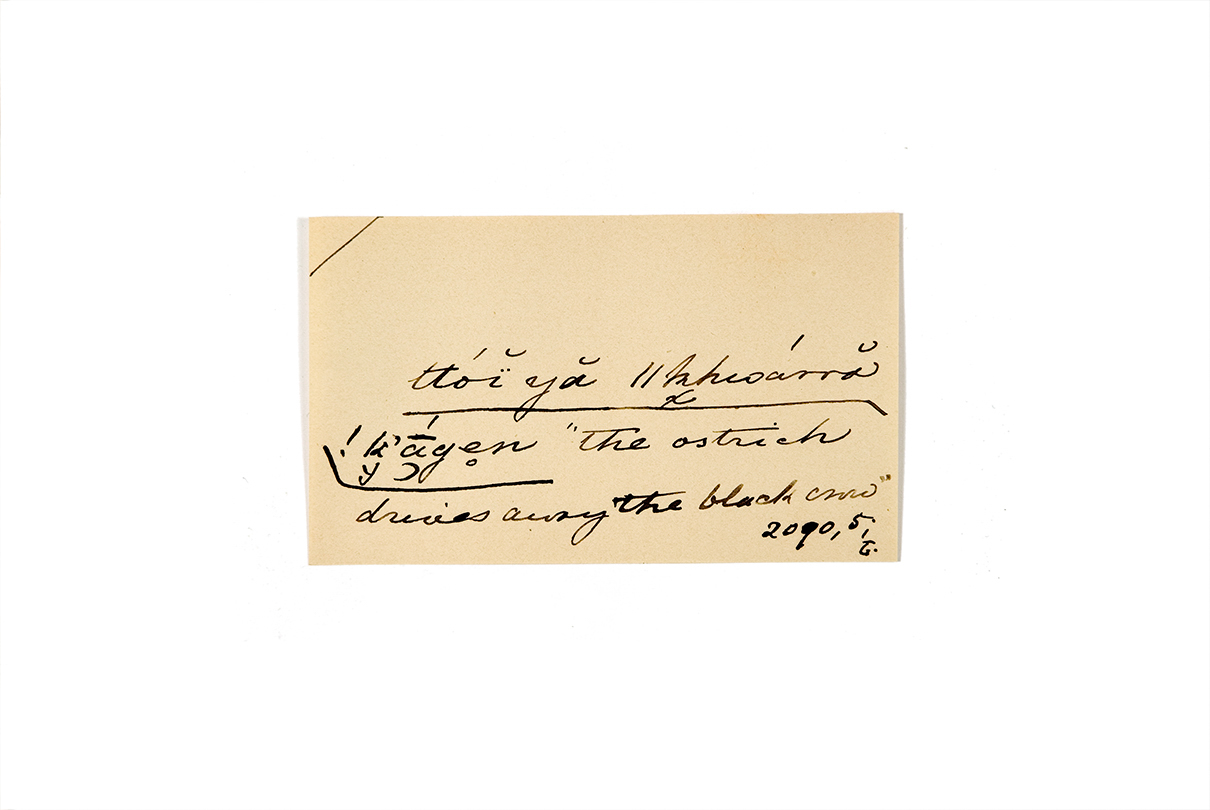 ttóï̆ yă ǁkhwárră
!k'ā́gen̥ "the ostrich
drives away "the black crow"
2090, 5,